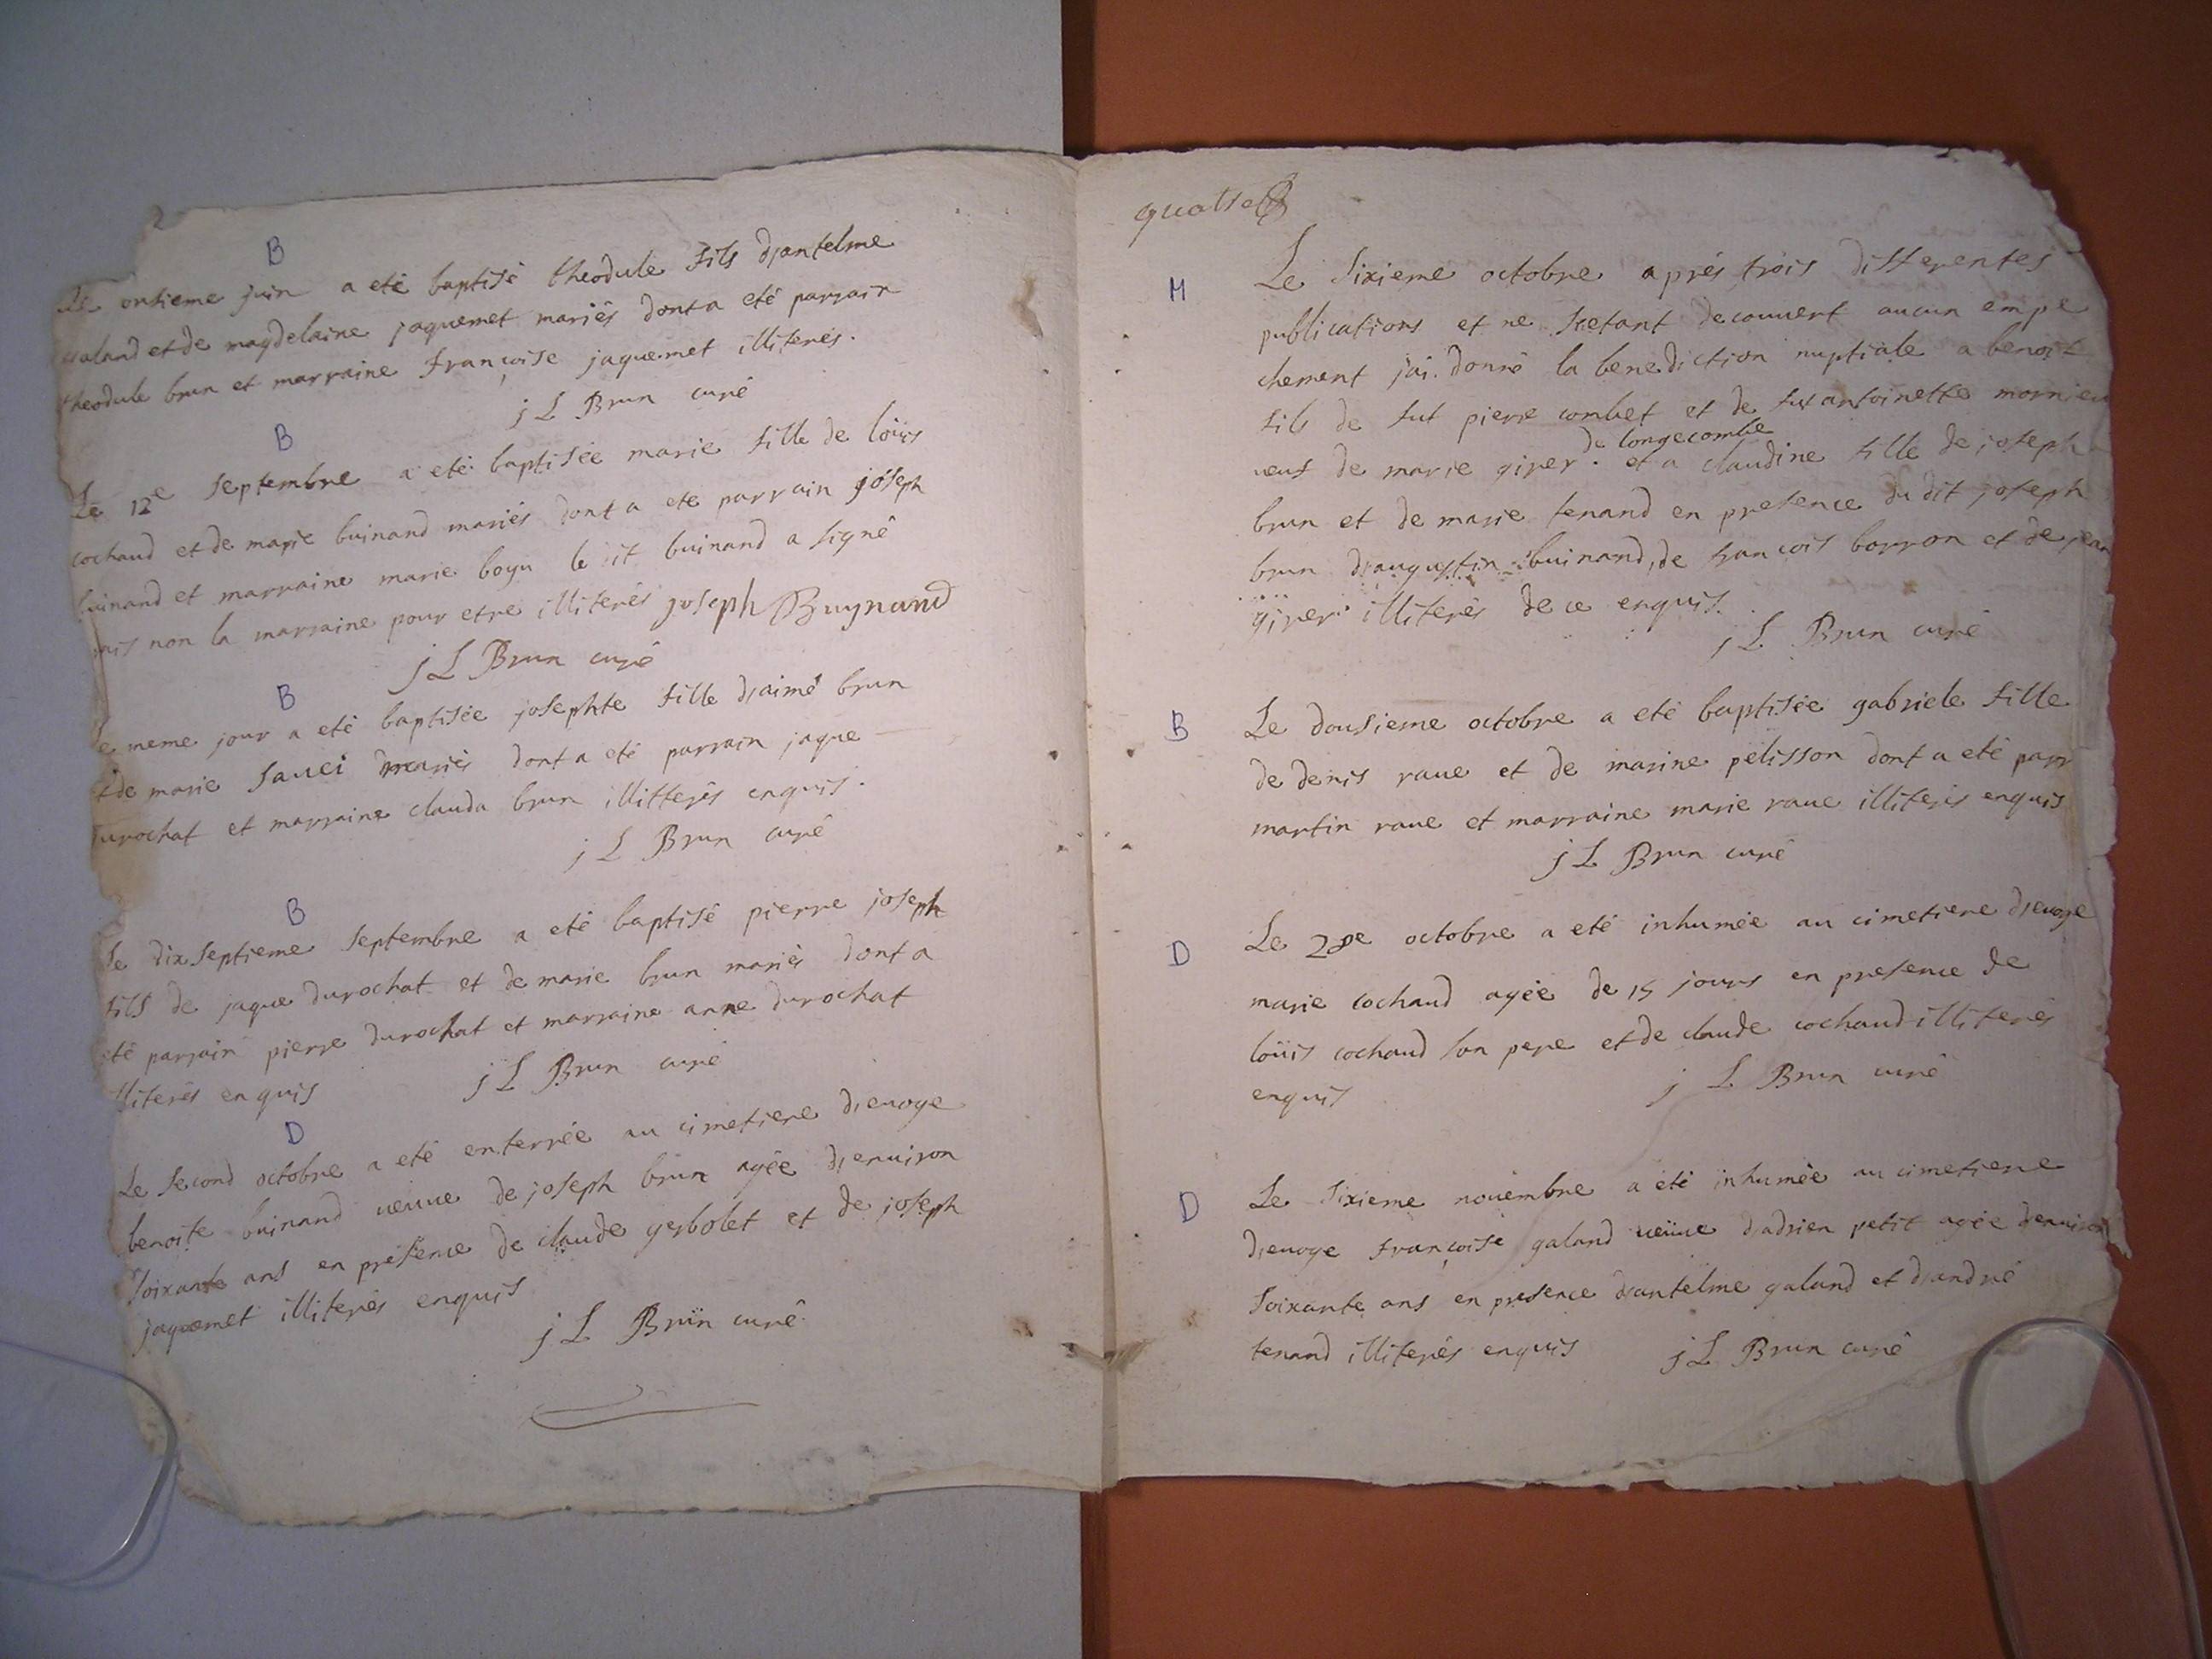 B
Le onsieme juin a eté baptisé theodule fils d'antelme
galand et de magdelaine jaquemet mariés dont a eté parrain
theodule brun et marraine françoise jaquemet illiterés.
j L Brun curé
B
Le 12e septembre a eté baptisée marie fille de loüis
cochaud et de marie buinand mariés dont a ete parrain joseph
buinand et marraine marie boyu le it buinand a signé
mis non la marraine pour etre illiterés joseph Buynand
j L Brun curé
B
Le meme jour a eté baptisée josephte fille d'aimé brun
et de marie savei mariés dont a eté parrain jaque
durochat et marraine clauda brun illitterés enquis.
j L Brun curé
B
Le dixseptieme septembre a eté baptisé pierre joseph
fils de jaque durochat et de marie brun mariés dont a
eté parrain pierre durochat et marraine anne durochat
illiterés enquis j L Brun curé
D
Le second octobre a eté enterrée au cimetiere d'evoge
benoite buinand veuve de joseph brun agée d'environ
soixante ans en présence de claude gerbolet et de joseph
jaquemet illiterés enquis
j L Brun curé
quatre
M
Le sixieme octobre aprés trois differentes
publications et ne s'etant decouvert aucun empe
chement j'ai donné la benediction nuptiale a benoit
fils de fut pierre combet et de fut antoinette mornieu
de longecombe
veuf de marie girer. et a claudine fille de joseph
brun et de marie tenand en presence du dit joseph
brun d'augustin buinand, de francois borron et de jean
girer illiterés de ce enquis.
j L Brun curé
B
Le dousieme octobre a eté baptisée gabriele fille
de denis rave et de marine pelisson dont a eté parr
martin rave et marraine marie rave illiterés enquis
j L Brun curé
D
Le 28e octobre a eté inhumée au cimetiere d'evoge
marie cochaud agée de 15 jours en presence de
loüis cochaud son pere et de claude cochaud illiterés
enquis j L Brun curé
D
Le sixieme novembre a été inhumée au cimetiere
d'evoge françoise galand veüve d'adrien petit agée d'environ
soixante ans en presence d'antelme galand et d'andré
tenand illiterés enquis j L Brun curé